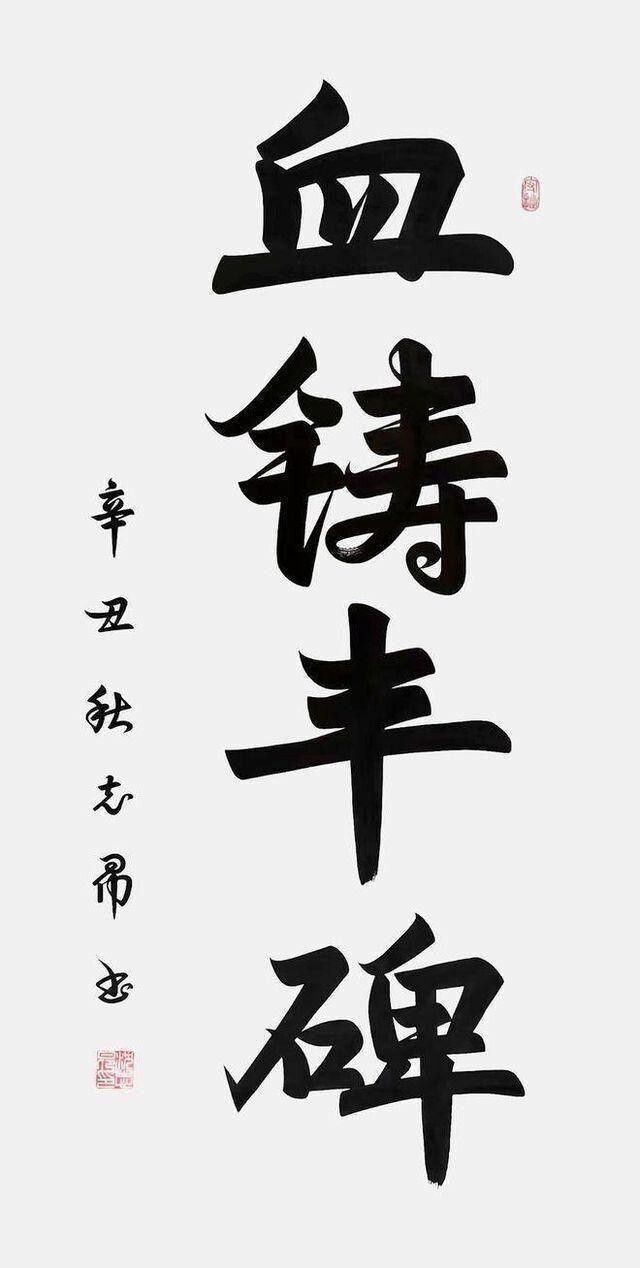 血铸丰碑
辛丑秋志帚书